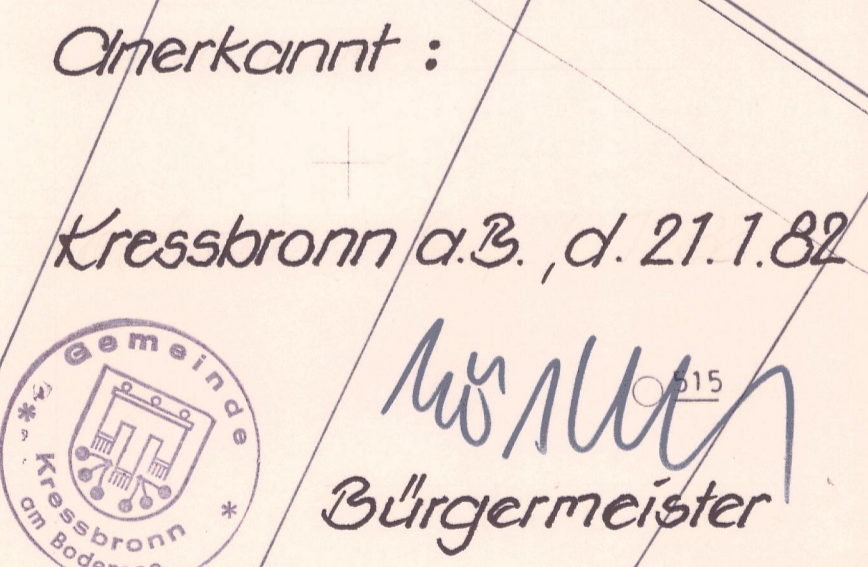 Anerkannt :
Kressbronn a.B. , d. 21.1.82
Gemeinde
* Kressbronn *
am Bodensee
515
Bürgermeister